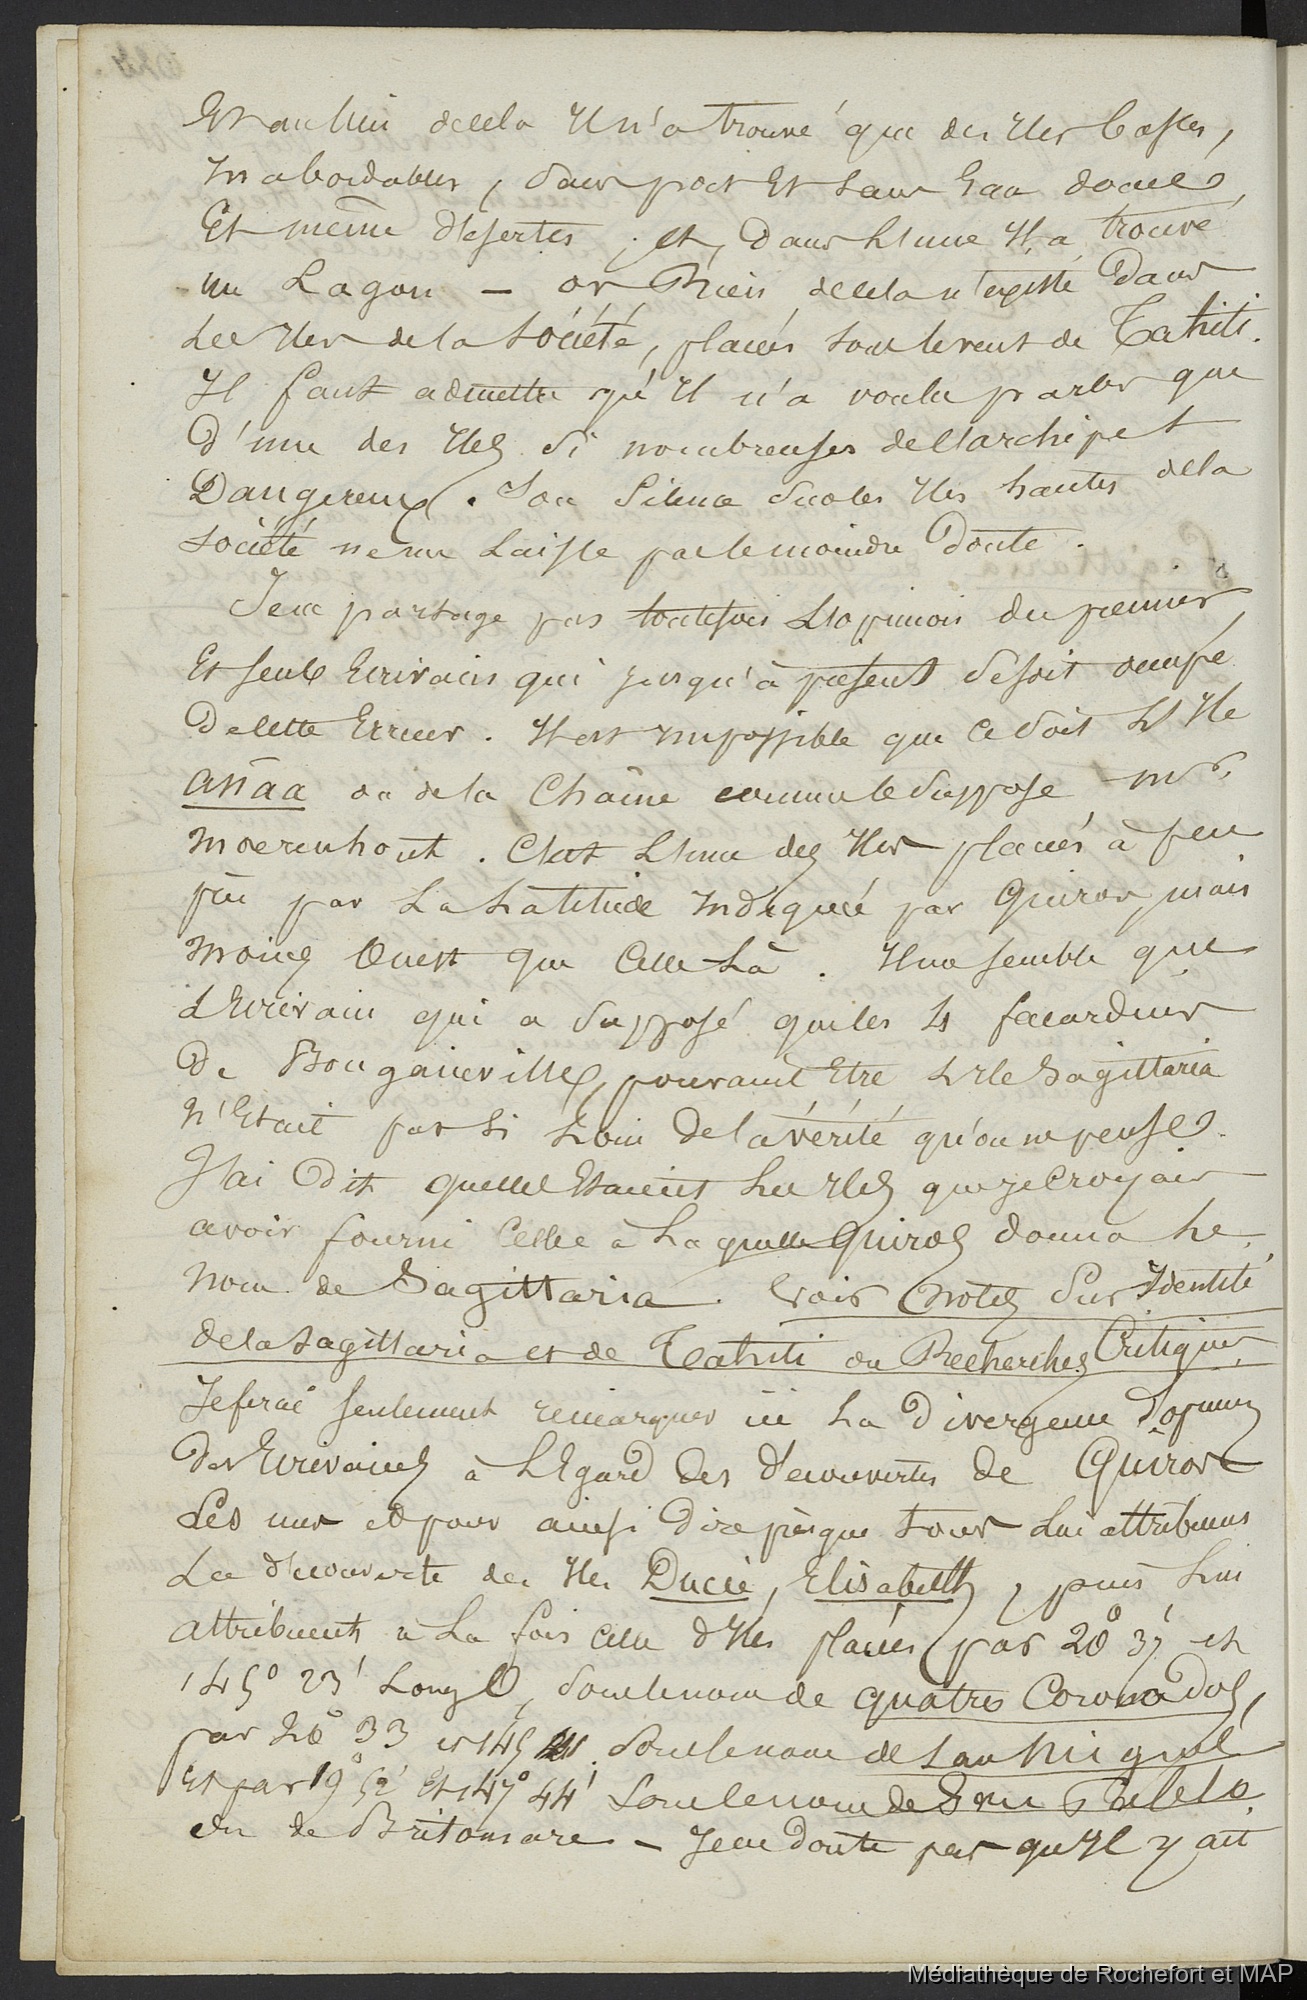 Et au lieu de cela Il n'a trouvé que des Iles basses,
Inabordables, sans port Et sans Eau douce,
Et même désertes ; et, dans l'une Il a trouvé
un Lagon — or Rien de cela n'existe Dans
Les Iles de la Société, placées sous le vent de Tahiti.
Il faut admettre qu'Il n'a voulu parler que
D'une des Iles si nombreuses de l'archipel
Dangereux. Son Silence sur les Iles hautes de la
Société ne me Laisse pas le moindre Doute.
Je ne partage pas toutefois L'opinion du premier
Et seul Ecrivain qui jusqu'à présent se soit occupé
De cette Erreur. Il est Impossible que ce soit L'Ile
anaa ou de la Chaîne comme le suppose Mr.
Moerenhout. C'est L'une des Iles placées à peu
près par La Latitude Indiquée par Quiros, mais
Moins Ouest que Celle Là. Il me semble que
L'Ecrivain qui a supposé que les 4 facardins
De Bougainville, pouvaient Etre L'Ile Sagittaria
N'Etait pas si Loin De la vérité qu'on ne pense.
J'ai Dit quelles Etaient Les Iles que je Croyais
avoir fourni Celle à Laquelle Quiros donna Le
Nom de Sagittaria. Voir Notes Sur Identité
de la Sagittaria et de Tahiti ou Recherches Critiques.
Je ferai seulement remarquer ici La Divergence D'opinion
Des Ecrivains à L'Egard Des D'écouvertes De Quiros
Les uns et pour ainsi Dire presque Tous Lui attribuent
La d'écouverte des Iles Ducie, Elisabeth, puis Lui
attribuent à La fois celle d'Iles placées par 20° 37' et
145° 23' Long O, sous le nom de quatre Coronados,
par 20° 33 et 145 sous le nom de San Miguel
Et par 19° 52' Et 147° 44' Sous le nom de
ou de Britomare — Je ne Doute pas qu'Il y ait
Médiathèque de Rochefort et MAP